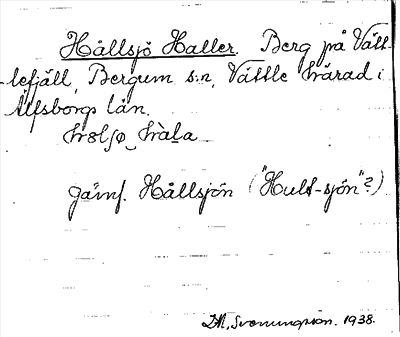 Hållsjö Haller. Berg på Vätt-
lefjäll, Bergum s:n, Vättle härad i
Älfsborgs län.
hålsjø hàla
jämf. Hållsjön ("Hult-sjön"?)
Svenungsson. 1938.